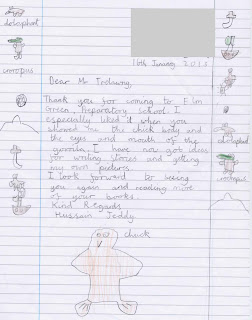 dolaphant
crocopus
16th January 2013
Dear Mr Trelawny,
Thank you for coming to Elm
Green Preparatory School. I
especially liked it when you
showed me the chick body and
the eyes and mouth of the
gorilla. I have now got ideas
for writing stories and getting
my own pictures.
I look forward to seeing
you again and reading more
of your books.
Kind Regards
Hussain
chick
crocopus